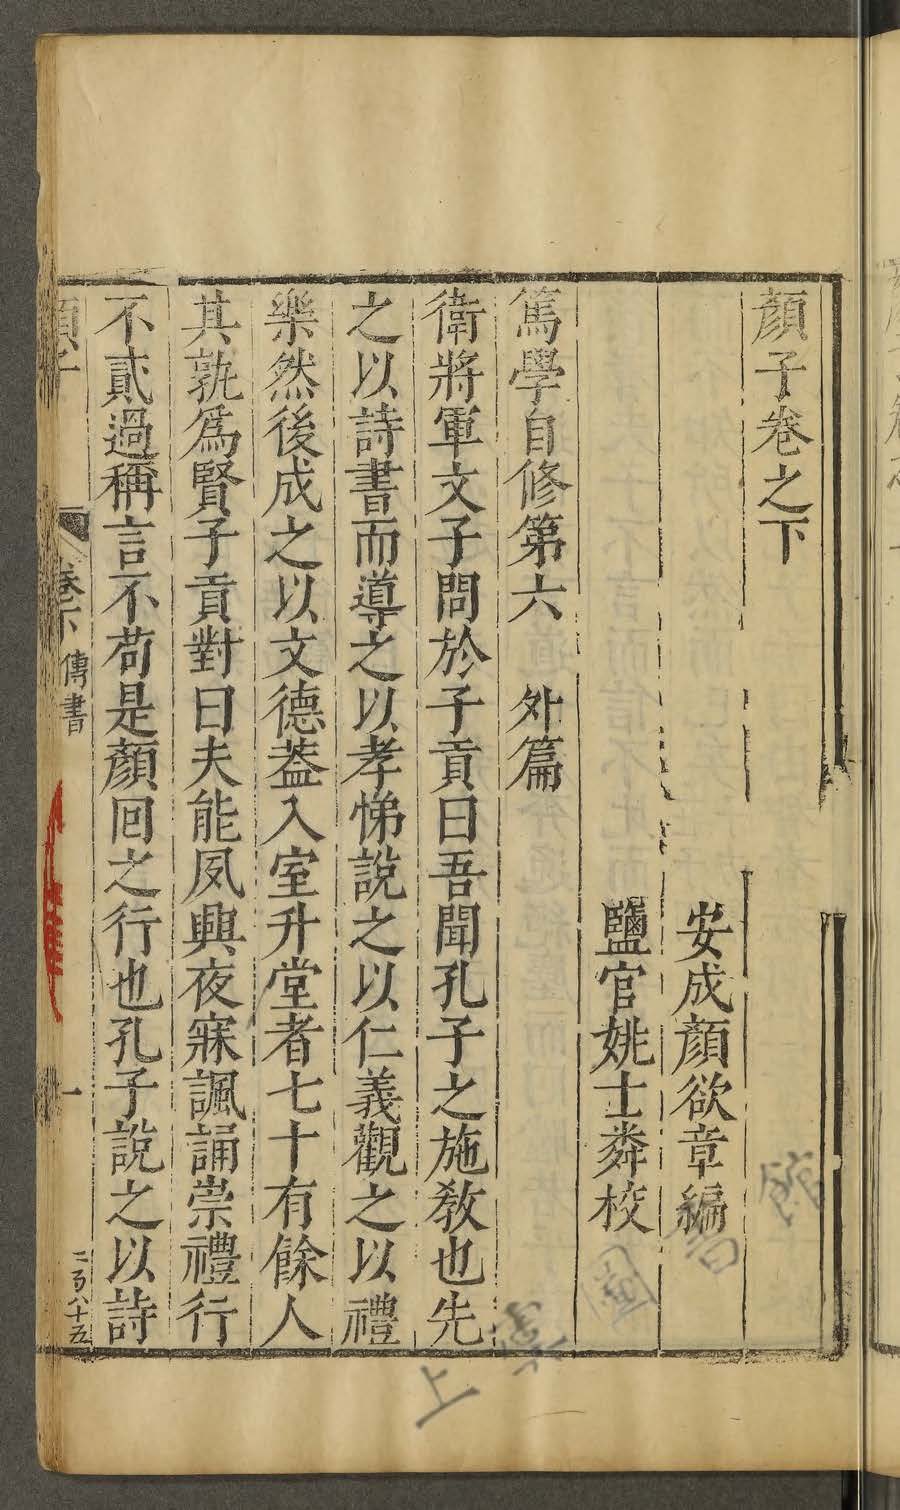 顏子卷之下
安成顏欲章編
鹽官姚士粦校
篤學自修第六　外篇
衛將軍文子問於子貢曰吾聞孔子之施教也先
之以詩書而導之以孝悌說之以仁義觀之以禮
樂然後成之以文德葢入室升堂者七十有餘人
其孰爲賢子貢對曰夫能夙興夜寐諷誦崇禮行
不貳過稱言不苟是顏回之行也孔子說之以詩
顏子
卷下
傳書
一
二百八十五